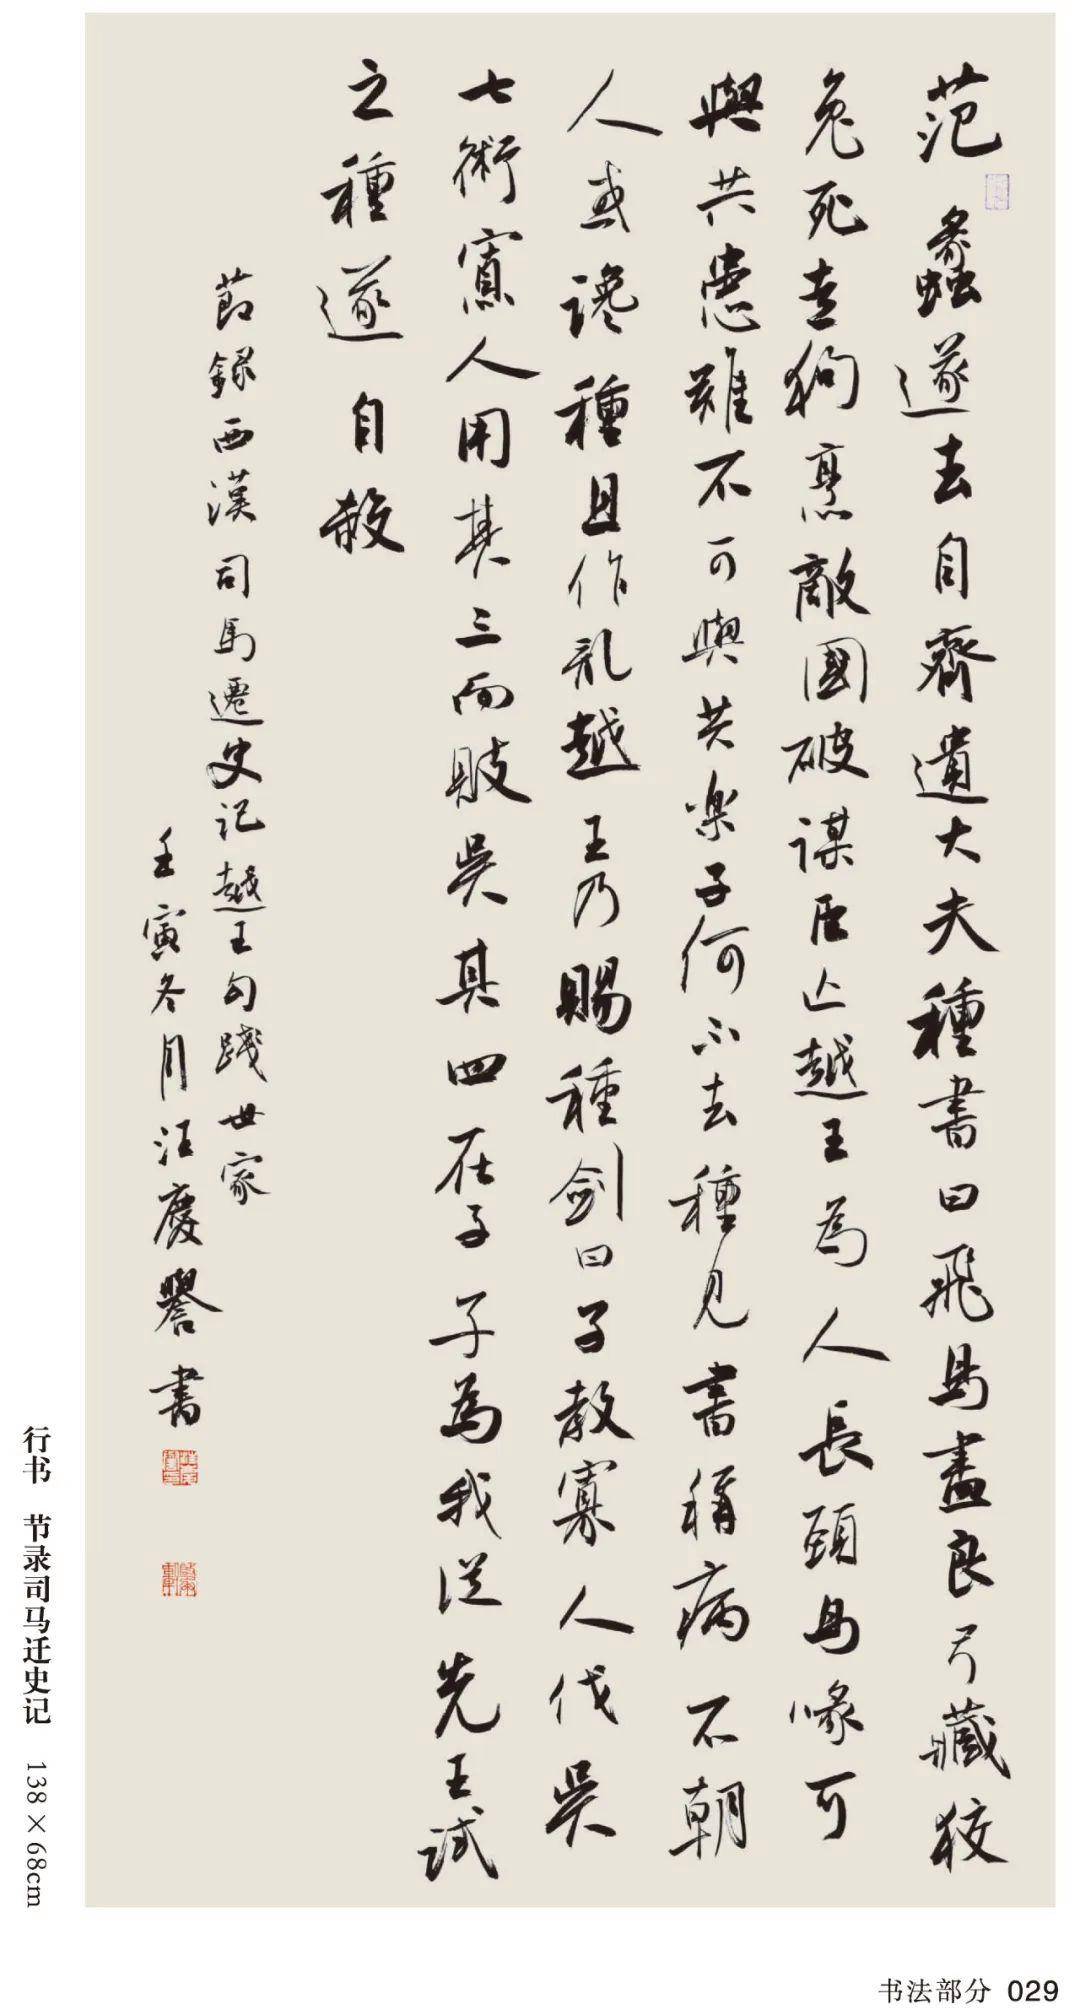 范蠡遂去自齊遺大夫種書曰飛鳥盡良弓藏狡
兔死走狗烹敵國破謀臣亡越王為人長頸鳥喙可
與共患難不可與共樂子何不去種見書稱病不朝
人或讒種且作亂越王乃賜種劍曰子教寡人伐吳
七術寡人用其三而敗吳其四在子子為我從先王試
之種遂自殺
節錄西漢司馬遷史記越王句踐世家
壬寅冬月汪慶譽書
行书 节录司马迁史记 138×68cm
书法部分 029